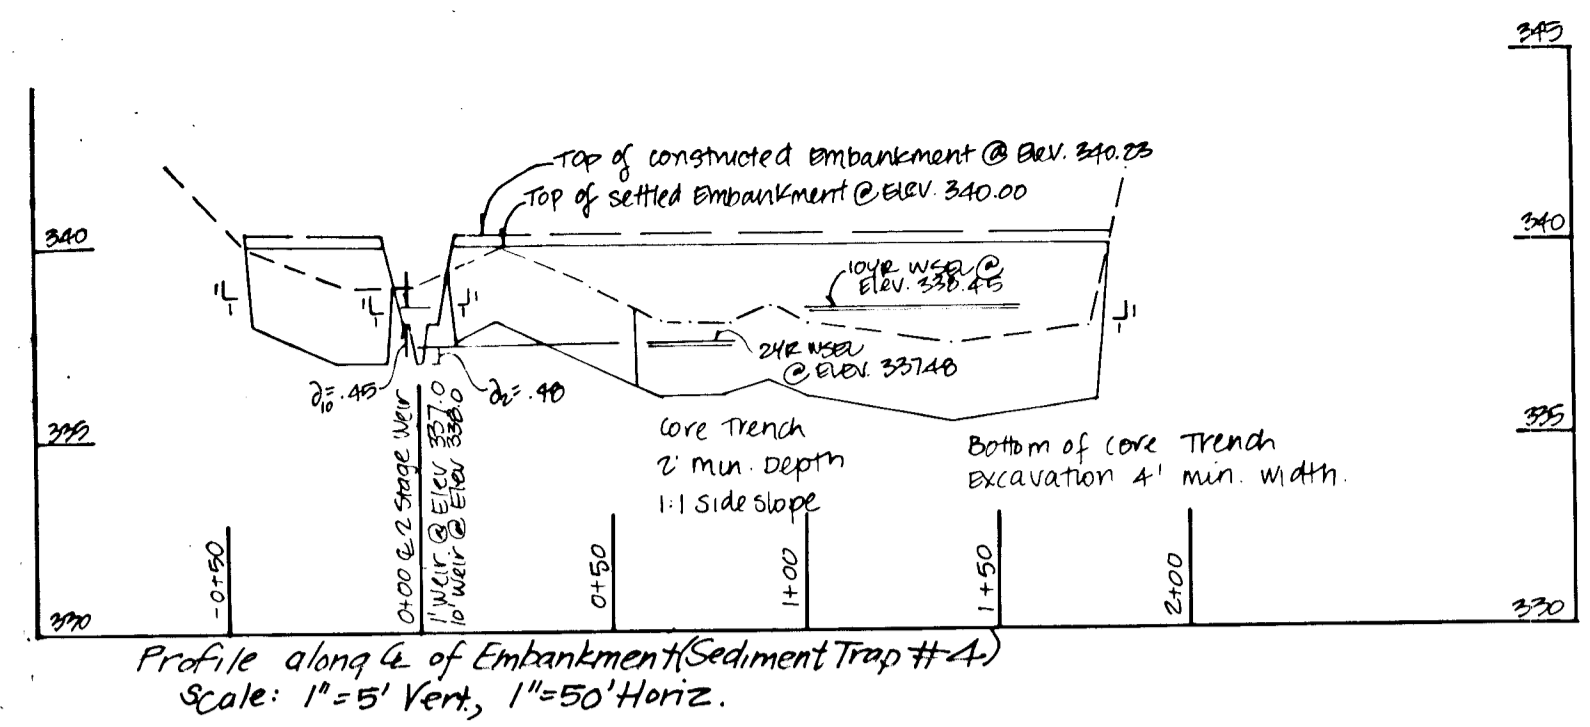 345
Top of constructed Embankment @ Elev. 340.23
Top of settled Embankment @ Elev. 340.00
340
340
10YR WSEL @
Elev. 338.45
1
1
1
1
2YR WSEL
@ ELEV. 337.48
∂10=.45
∂2=.48
335
335
Core Trench
2' Min. Depth
1:1 Side slope
Bottom of Core Trench
Excavation 4' min. width.
-0+50
0+00 ℄ 2 Stage Weir
1' Weir @ Elev 337.0
10' Weir @ Elev 338.0
0+50
1+00
1+50
2+00
330
330
Profile along ℄ of Embankment (Sediment Trap #4)
Scale: 1"=5' Vert., 1"=50' Horiz.